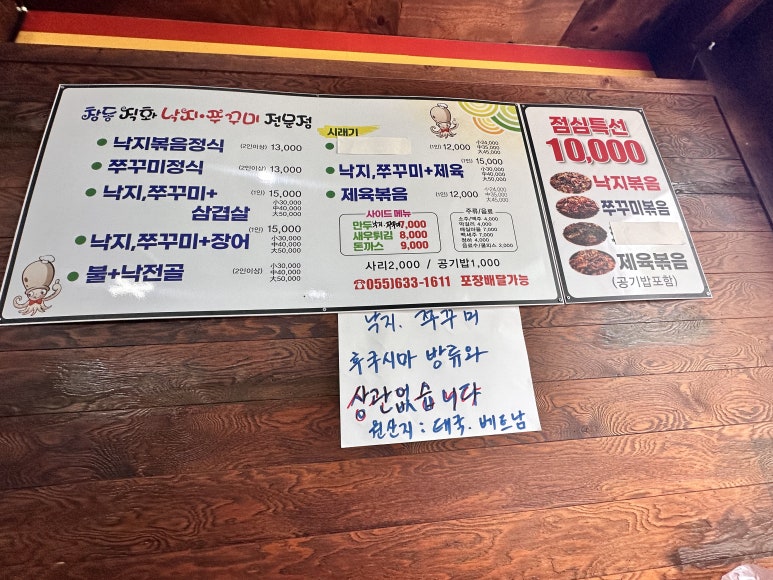 창동 직화 낙지·쭈꾸미 전문점
낙지볶음정식 (2인이상) 13,000
쭈꾸미정식 (2인이상) 13,000
낙지,쭈꾸미+ (1인) 15,000
삼겹살 小30,000
中40,000
大50,000
낙지,쭈꾸미+장어 (1인) 15,000
小30,000
中40,000
大50,000
불+낙전골 (2인이상) 小30,000
中40,000
大50,000
시래기
(1인) 12,000 小24,000
中35,000
大45,000
낙지,쭈꾸미+제육 (1인) 15,000
小30,000
中40,000
大50,000
제육볶음 (1인) 12,000 小24,000
中35,000
大45,000
사이드 메뉴
만두 7,000
새우튀김 8,000
돈까스 9,000
주류/음료
소주/맥주 4,000
막걸리 4,000
매실마을 7,000
백세주 7,000
청하 4,000
음료수/쿨피스 2,000
사리2,000 / 공기밥1,000
☎055)633-1611 포장배달가능
점심특선
10,000
낙지볶음
쭈꾸미볶음
제육볶음
(공기밥포함)
낙지. 쭈꾸미
후쿠시마 방류와
상관없습니다
원산지 : 태국. 베트남